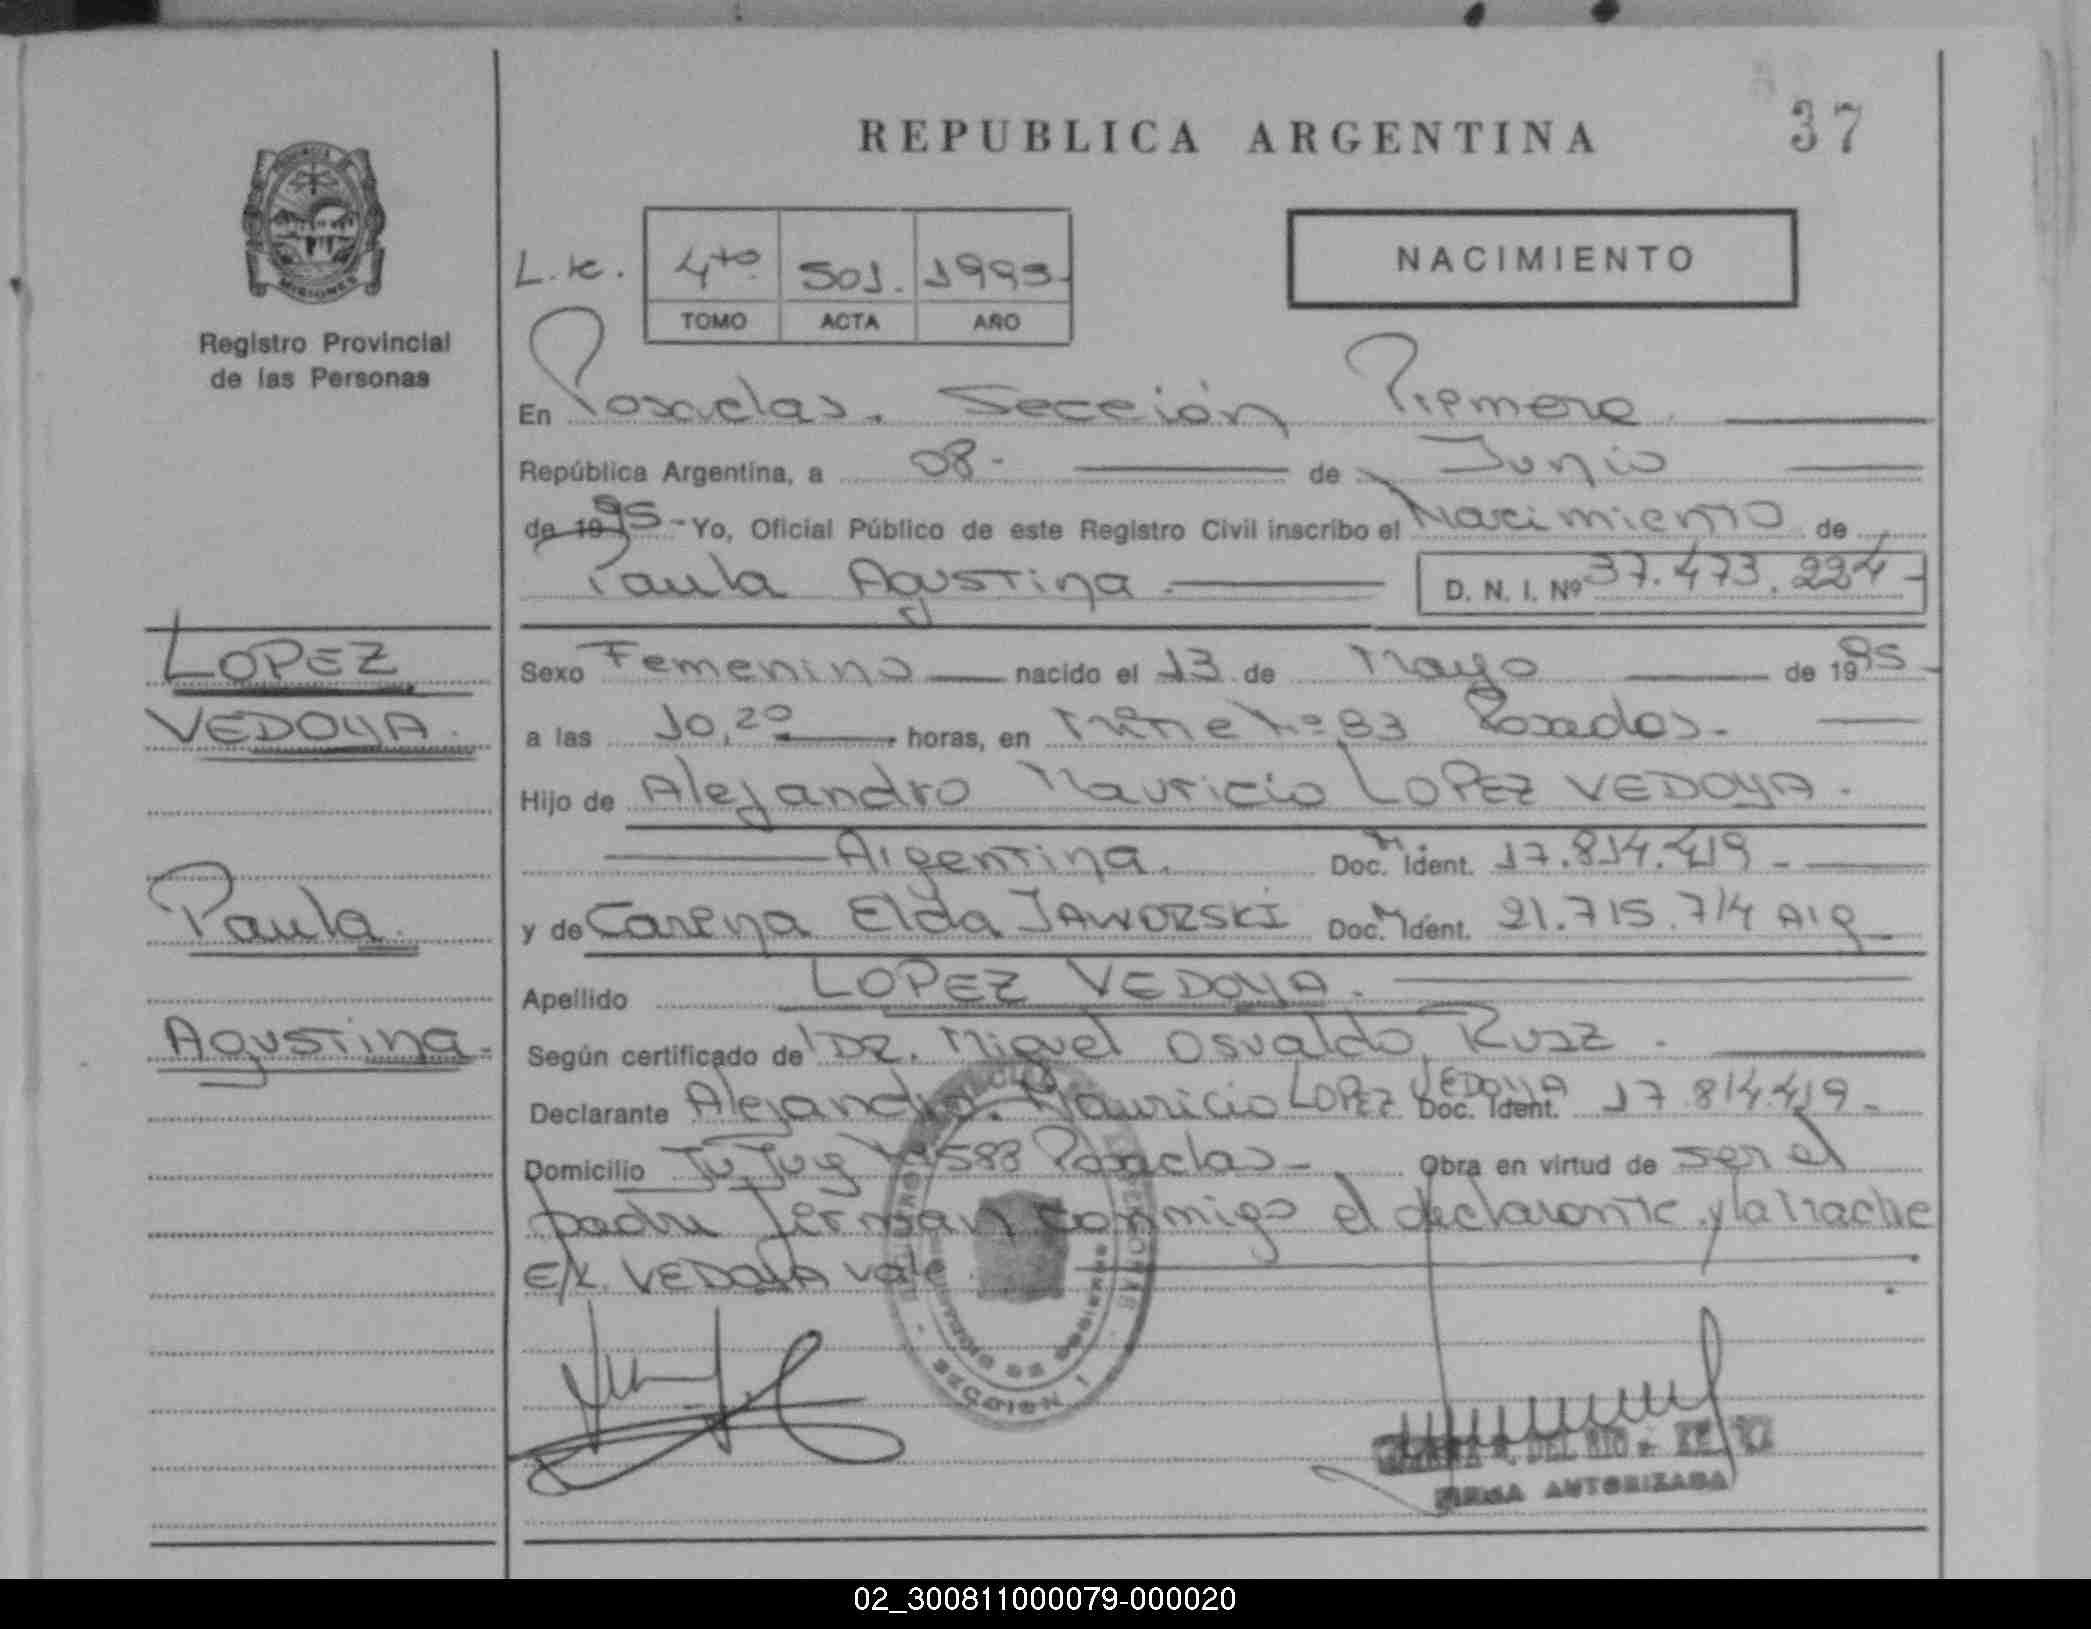 37
REPUBLICA ARGENTINA
MISIONES
Registro Provincial
de las Personas
4to 501. 1995
TOMO ACTA AÑO
NACIMIENTO
En Posadas. Sección Primera
República Argentina, a 08- de Junio
de 1995- Yo, Oficial Público de este Registro Civil inscribo el Nacimiento de
Paula Agustina D. N. I. Nº 37.473.224-
LOPEZ
VEDOYA.
Paula
Agustina-
Sexo Femenino nacido el 13 de Mayo de 1995-
a las 10,20 horas, en Posadas-
Hijo de Alejandro Mauricio LOPEZ VEDOYA.
Argentina. Doc. Ident. 17.814.419-
y de Carena Elda JAWORSKI Doc. Ident. 21.715.714 Arg
Apellido LOPEZ VEDOYA.
Según certificado de DR. Miguel Osvaldo Ruiz.
Declarante Alejandro Mauricio LOPEZ VEDOYA Doc. Ident. 17.814.419-
Domicilio Jujuy Nº 583 Posadas- Obra en virtud de ser el
padre firman conmigo el declarante y la Madre
E/L. VEDOYA vale
SECCION 1
DEL RIO
FIRMA AUTORIZADA
02_300811000079-000020